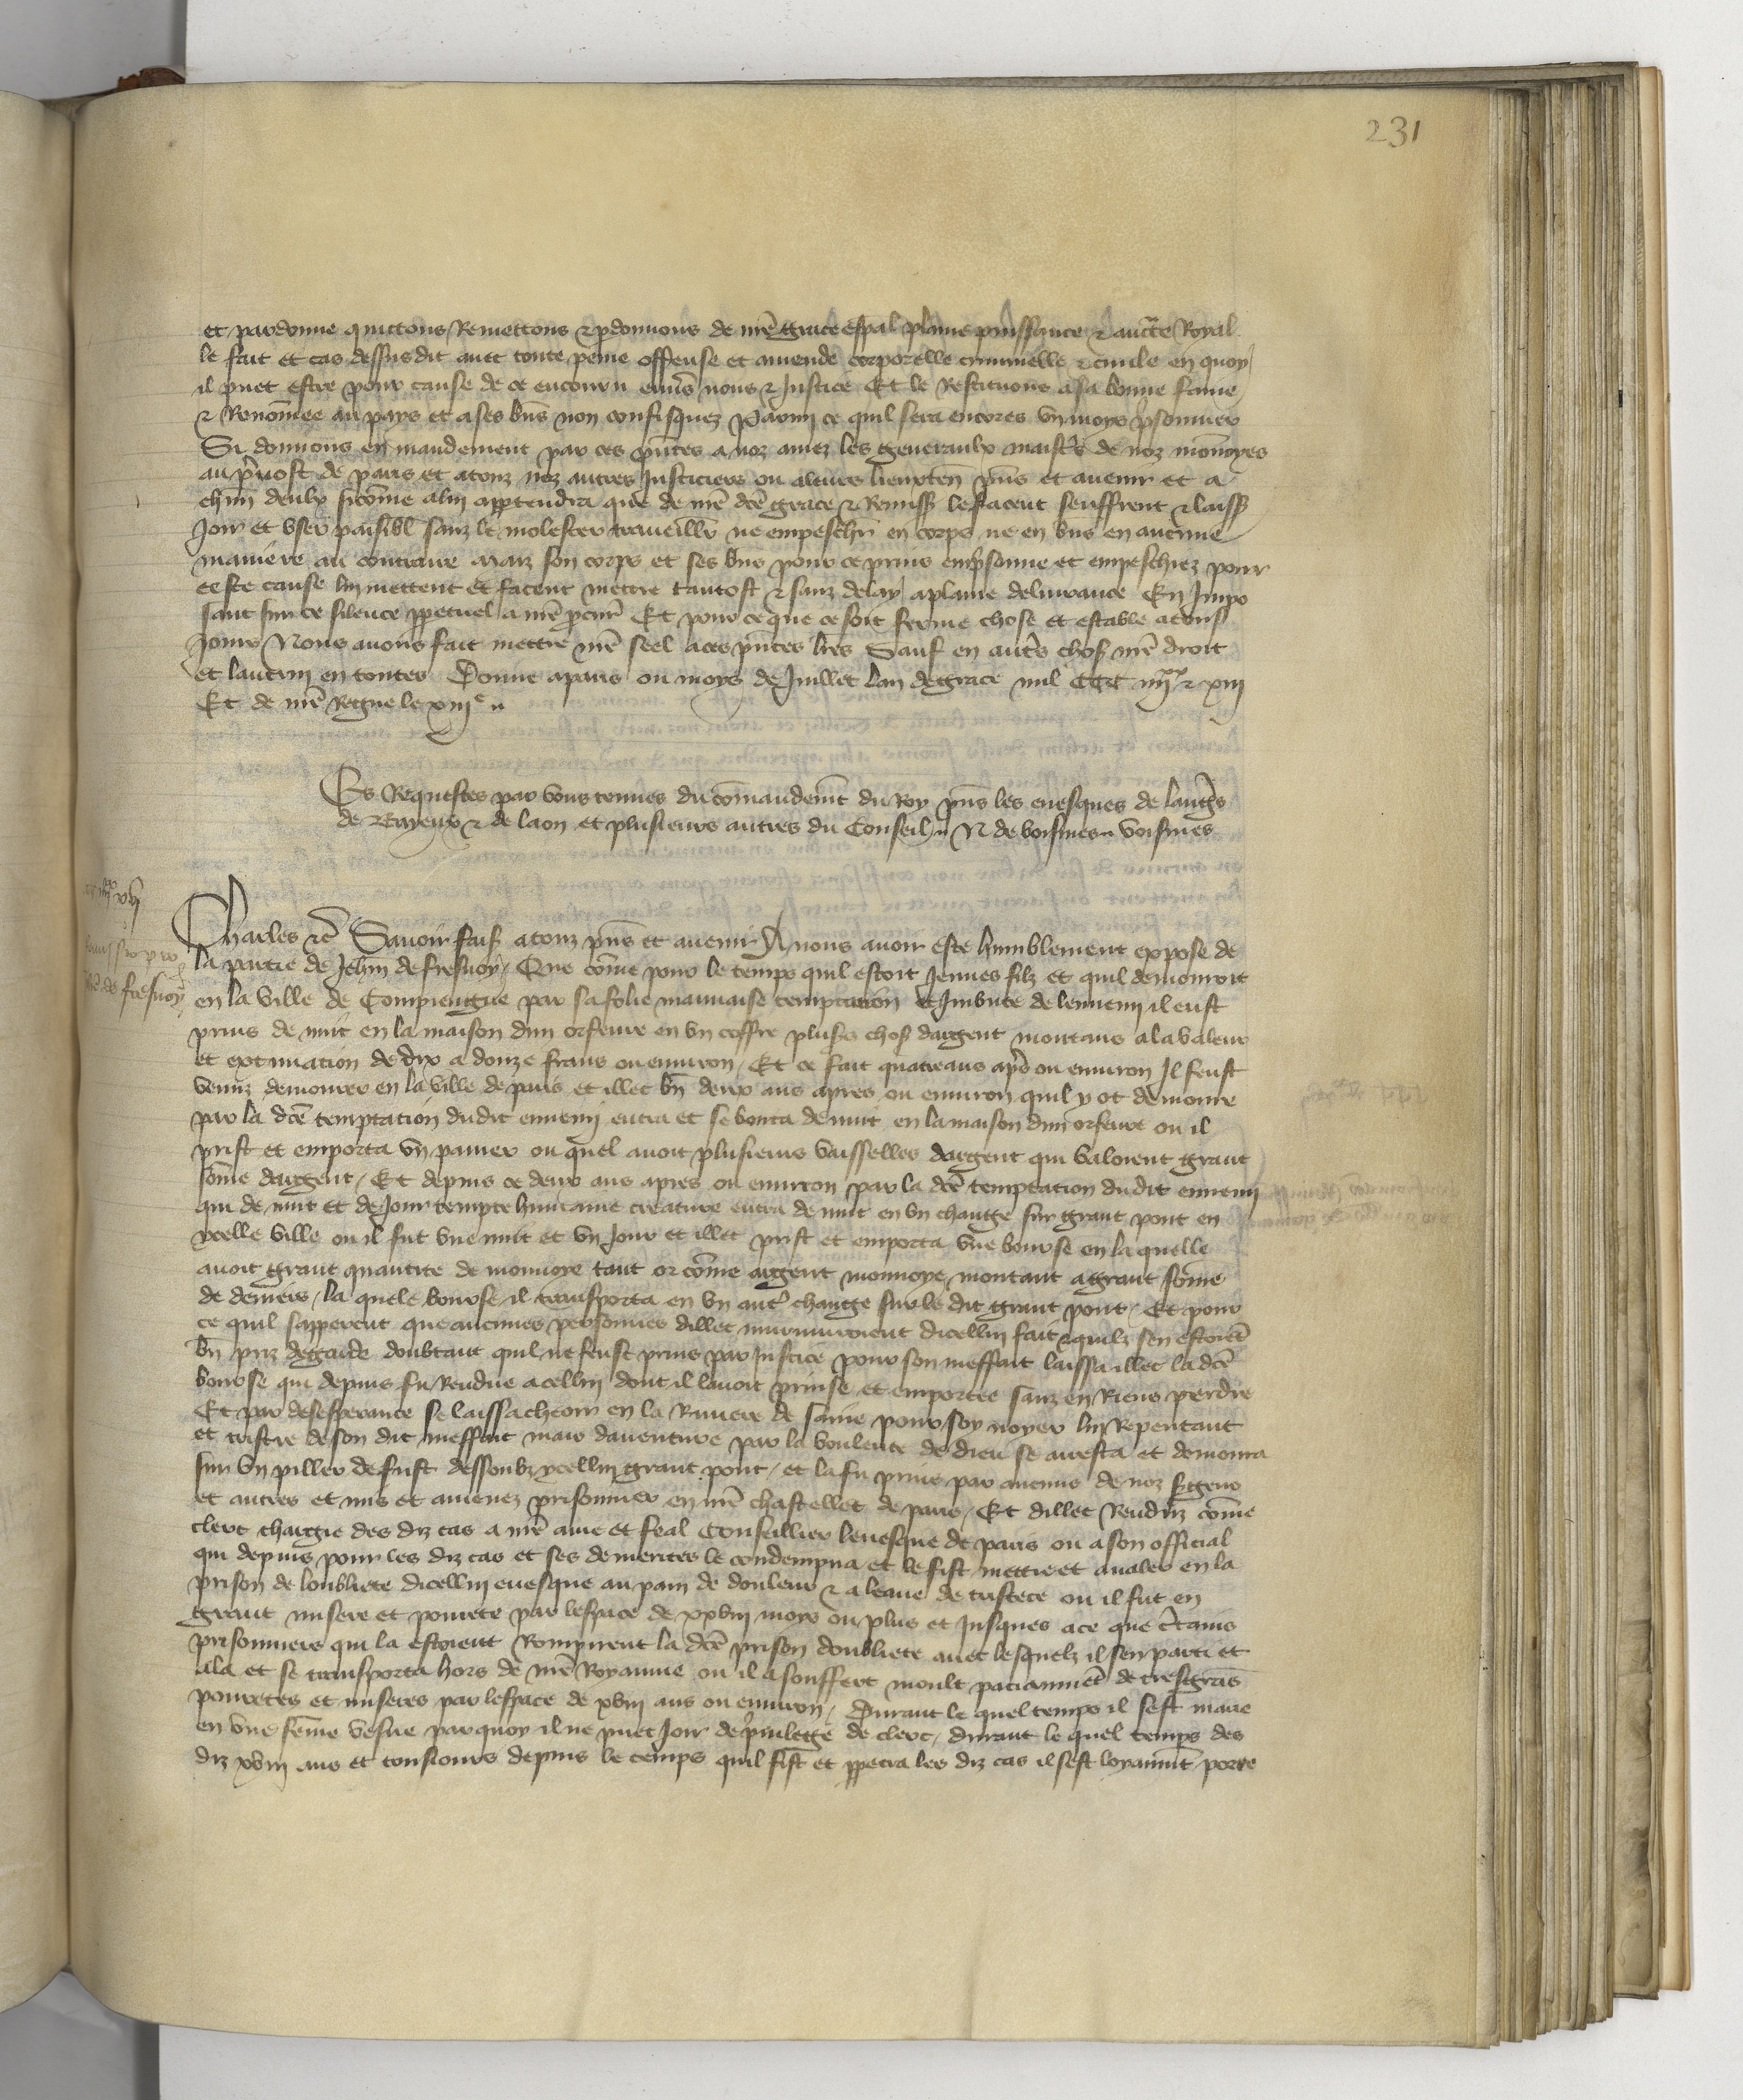 231
et pardonne quictons Remettons et pdonnons de nre grace espal plaine puissance et aucte Royal
le fait et cas dessusdit auec toute peine offense et amende corporelle criminelle et ciuile en quoy
il puet estre pour cause de ce encouru enuers nous et Justice Et le Restituons a sa bonne fame
et Renommee au pays et a ses bns non confisquez Parmy ce quil sera encores vn moys prisonnier
Si donnons en mandement par ces pntes a noz amez les generaulx maistres de noz monnoyes
au preuost de paris et a touz noz autres Justiciers ou a leurs lieuxten pns et auenir et a
chun deulx sicome a lui apptendra que de nre dce grace et Remiss le facent seuffrent et laiss
Joir et vser paisibl sanz le molester traueillr ne empeschr en corps ne en bns en aucune
maniere au contraire Maiz son corps et ses bns pour ce prins emprisonne et empeschiez pour
ceste cause lui mettent et facent mettre tantost et sanz delay a plaine deliurance En Impo
sant sur ce silence ppetuel a nre pcur Et pour ce que ce soit ferme chose et estable a touſ
Jours Nous auons fait mettre nre seel a ces pntes lres Sauf en autres chos nre droit
et lautruy en toutes Donne a paris ou moys de Juillet lan de grace mil CCC iiiixx et xiii
Et de nre Regne le xiiie
Es Requestes par vous tenues du comandemt du Roy pns les euesques de langrs
de Bayeux et de laon et plusieurs autres du Conseil N de voisines voisines
iiiixx xvii
Remissio pro
Jhe de fresnoy
Charles etc Sauoir fais a touz pns et auenir A nous auoir este humblement expose de
la partie de Jehn de fresnoy Que come pour le temps quil estoit Jeunes filz et quil demouroit
en la ville de Compiengne par sa folie mauuaise temptacion et Imbute de lennemi il eust
prins de nuit en la maison dun orfeure en vn coffre plusrs chos dargent montans a la valeur
et extimacion de dix a douze frans ou enuiron Et ce fait quatre ans apres ou enuiron Il feust
venuz demourer en la ville de paris et illec bn deux ans apres ou enuiron quil y ot demoure
par la dce temptacion dudit ennemi entra et se bouta de nuit en la maison dun orfeure ou il
prist et emporta vn panier ou quel auoit plusieurs vaisselles dargent qui valoient grant
some dargent Et depuis ce deux ans apres ou enuiron par la dce temptacion dudit ennemi
qui de nuit et de Jour tempte humaine creature entra de nuit en vn change sur grant pont en
ycelle ville ou il fut vne nuit et vn Jour et illec prist et emporta vne bourse en la quelle
auoit grant quantite de monnoye tant or come argent monnoye montant a grant some
de deniers la quele bourse il transporta en vn autr change sur le dit grant pont Et pour
ce quil sapperceut que aucunes personnes dillec murmuroient dicellui fait et quilz sen estoiet
bn priz de garde doubtant quil ne feust prins par Justice pour son meffait laissa illec la dce
bourse qui depuis fu Rendue a cellui dont il lauoit prinse et emportee sanz en Riens perdre
Et par desesperance se laissa cheoir en la Riuiere de saine pour soy noyer lui Repentant
et tristre de son dit meffait mais dauenture par la voulente de dieu se arresta et demoura
sur vn piller de fust dessoubz ycellui grant pont et la fu prins par aucuns de noz sergens
et autres et mis et amenez prisonnier en nre chastellet de paris Et dillec Renduz come
clerc chargie des diz cas a nre ame et feal Conseillier leuesque de paris ou a son official
qui depuis pour les diz cas et ses demerites le condempna et le fist mettre et aualer en la
prison de loubliete dicellui euesque au pain de douleur et a leaue de tristece ou il fut en
grant misere et pourete par lespace de xxviii moys ou plus et Jusques a ce que ctains
prisonniers qui la estoient Rompirent la dce prison doubliete auec lesquelz il sen parti et
ala et se transporta hors de nre Royaume ou il a souffert moult paciammet de tresgrans
pouretes et miseres par lespace de xviii ans ou enuiron Durant le quel temps il sest marie
en vne feme vefue par quoy il ne puet Joir de priuilege de clerc durant le quel temps des
diz xviii ans et tousiours depuis le temps quil fist et ppetra les diz cas il sest loyaumt porte